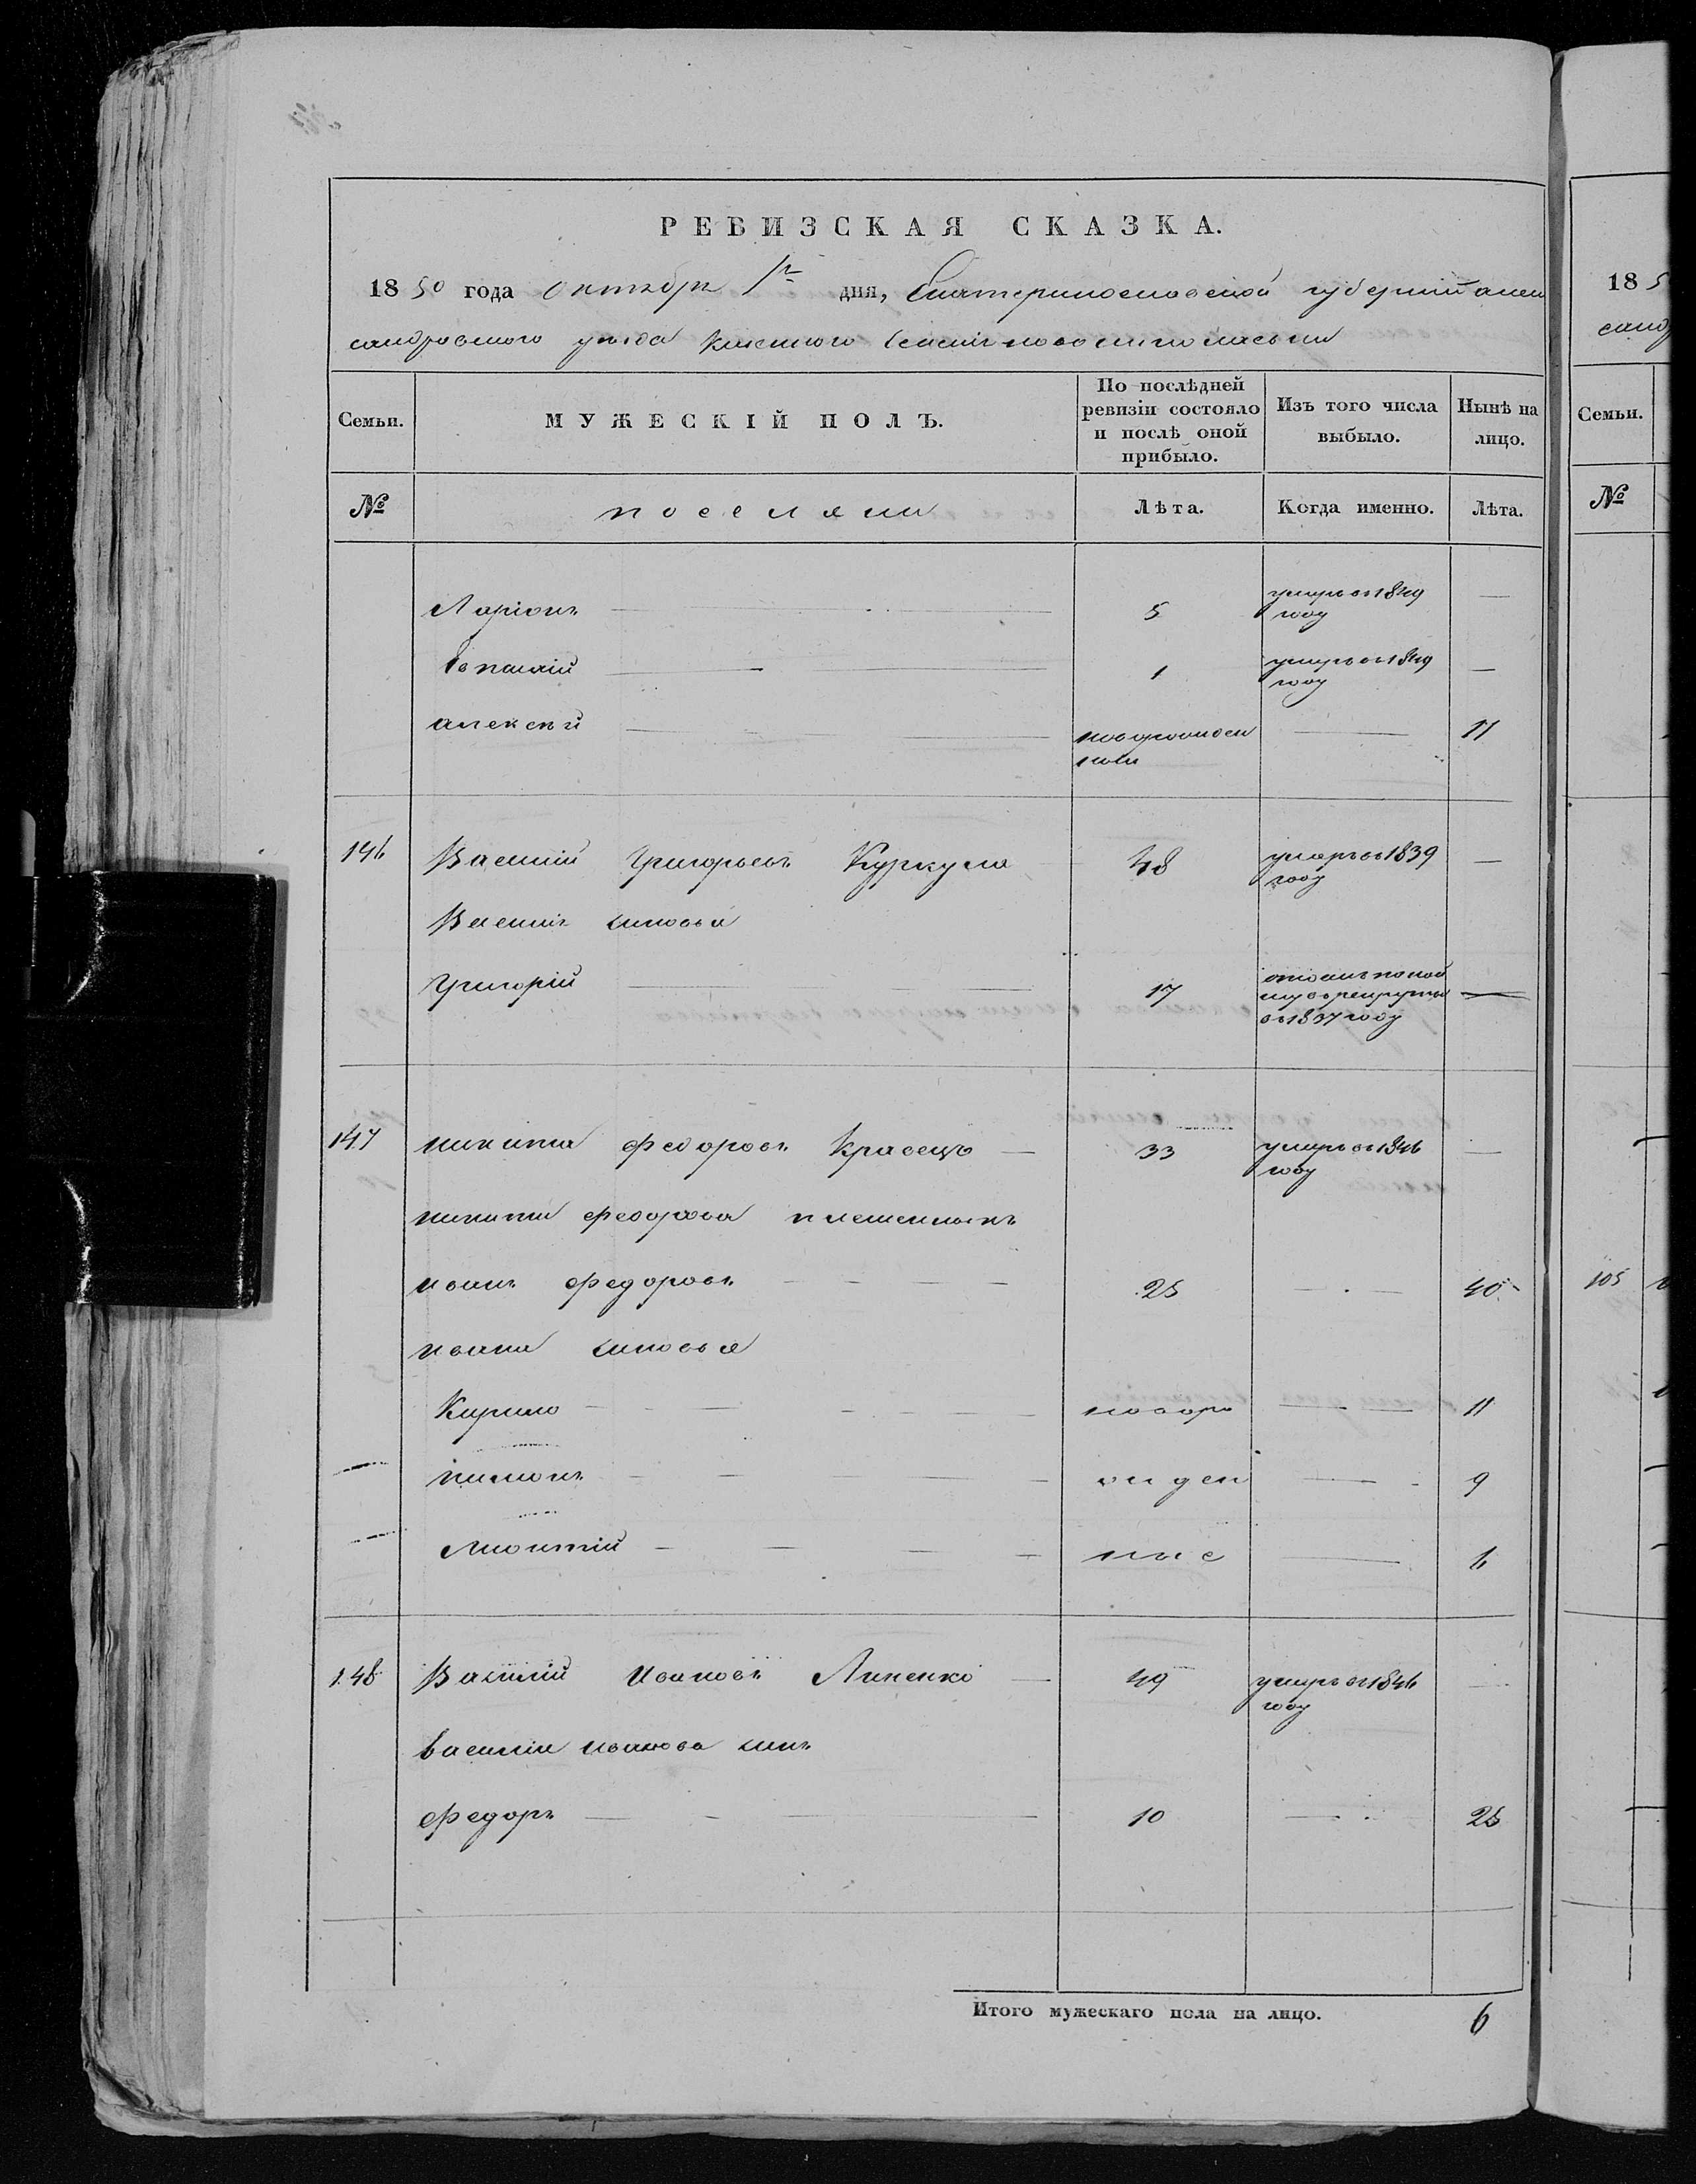 РЕВИЗСКАЯ СКАЗКА.
1850 года октября 1го дня, Екатеринославской губернии Алек
сандровского уезда казенного селения новониколаевки
Семьи. МУЖЕСКІЙ ПОЛЪ. По послѣдней ревизіи состояло и послѣ оной прибыло. Изъ того числа выбыло. Нынѣ на лицо.
№ поселяни Лѣта. Когда именно. Лѣта.
Ларіонъ 5 умеръ въ 1849 году —
1 умеръ въ 1849 году —
алексѣй новорожден ный — 11
146 Василій Григорьевъ Куркула 48 умеръ въ 1839 году —
Василія синовья
Григорій 17 въ рекруты въ 1837 году —
147 никита Федоровъ Кравецъ — 33 умеръ въ 1846 году —
никити федорова племенникъ
иванъ Федоровъ 25 — 40
ивана синовья
Кирило новоро — 11
пилипъ жден — 9
Леонтій ные — 6
148 Василій Ивановъ Линенко — 49 умеръ въ 1846 году —
василія иванова синъ
Федоръ 10 — 25
Итого мужескаго пола на лицо. 6
185
санд
Семьи.
№
105